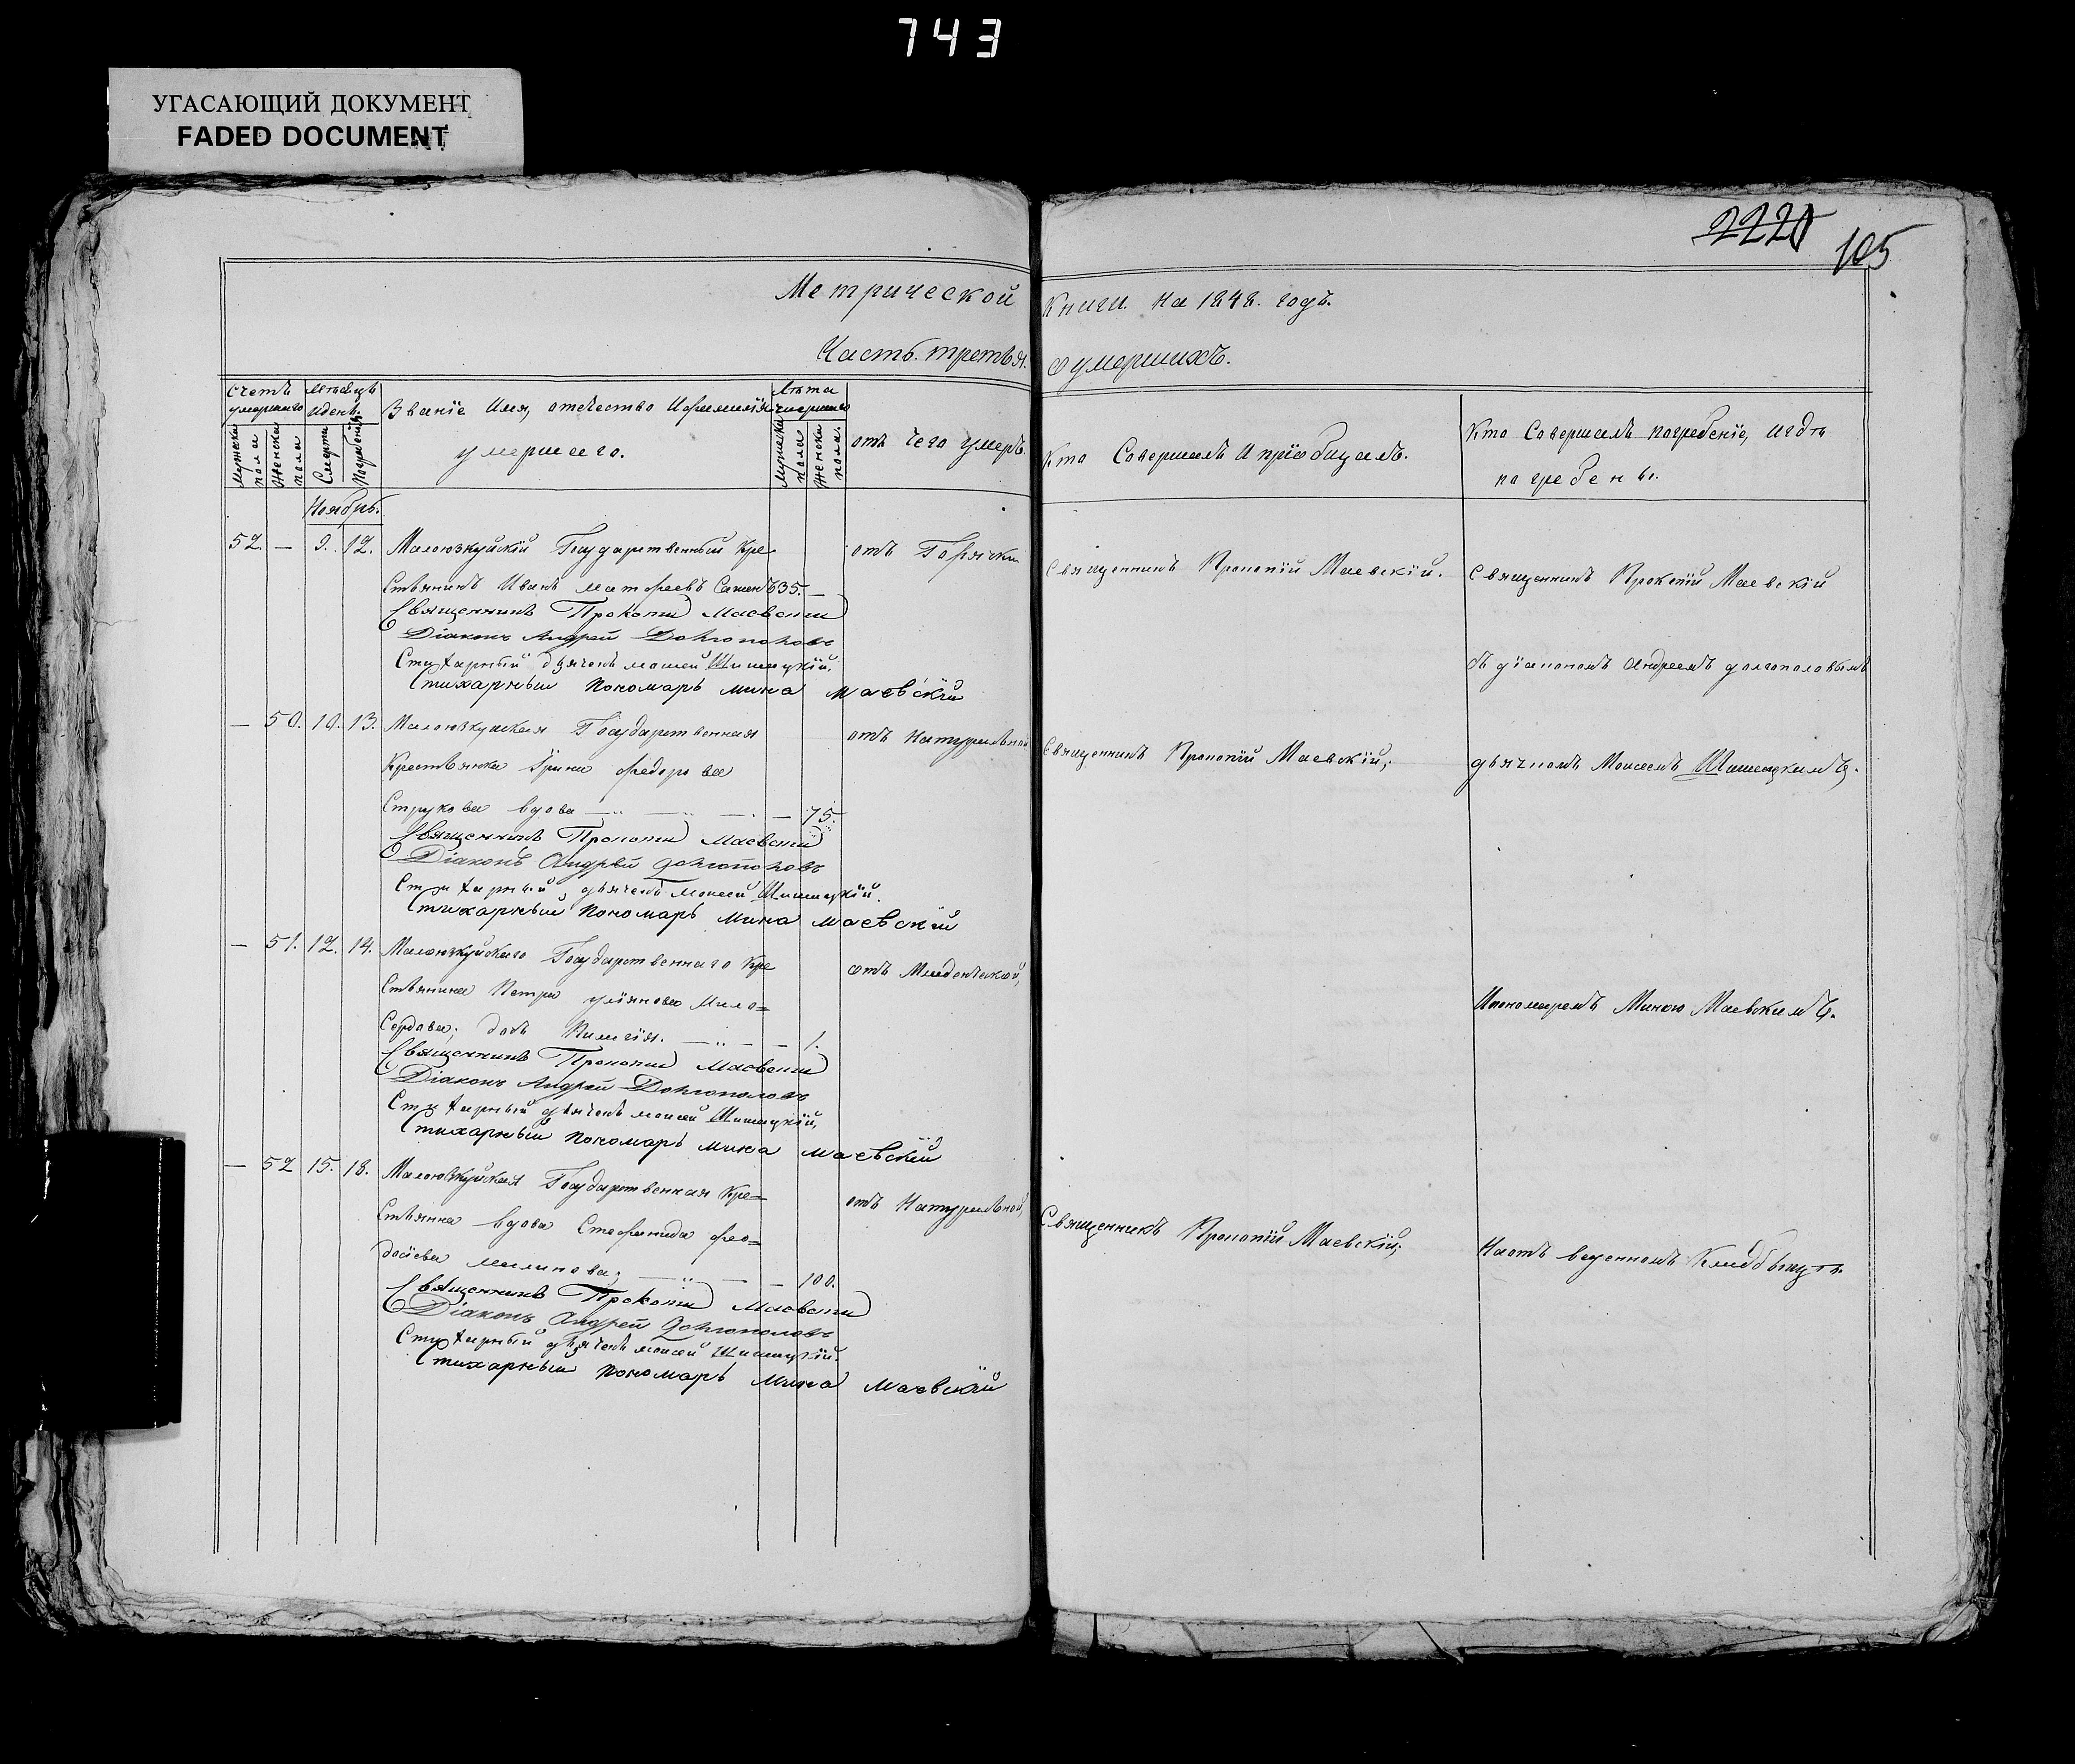 743
УГАСАЮЩИЙ ДОКУМЕНТ
FADED DOCUMENT
2220
105
Метрической Книги на 1848. годъ.
Часть третья. о умершихъ.
Счетъ умершаго
Мужеска пола
Женска пола
Мѣсяцъ и день.
Смерти
Погребенія
Званїе Имя, отечество и фамилїя
умершаго.
Лѣта умершаго
Мужеска пола
Женска пола.
отъ чего умеръ.
Кто Совершалъ и прїобщалъ.
Кто Совершалъ погребенїе, и гдѣ
погребены.
Ноябрь.
52. — 9. 12. Малоюзкуйскїй Государственный Кре
отъ Горячки
Стьянинъ Иванъ матфеевъ 35. —
Священникъ Прокопій Маевскій
Діаконъ Андрей Долгополовъ
Стихарный дьячекъ моисей Шишацкїй,
Стихарный пономарь мина маевскїй
Священникъ Прокопїй Маевскїй.
Священникъ Прокопїй Маевскїй
съ дїакономъ Андреемъ долгополовымъ
— 50. 10. 13. Малоюзкуйская Государственная
отъ Натуральной
Крестьянка Ірина федорова
Струкова вдова — — — 75.
Священникъ Прокопій Маевскій
Діаконъ Андрей Долгополовъ
Стихарный, дьячекъ моисей Шишацкїй.
Стихарный пономарь мина маевскїй
Священникъ Прокопїй Маевскїй;
дьячкомъ Моисеемъ Шишацкимъ.
— 51. 12. 14. Малоюзкуйскаго Государственнаго Кре
отъ Младенческой,
Стьянина Петра улїянова Мило=
Сердова; дочь — — 1.
Священникъ Прокопій Маевскій
Діаконъ Андрей Долгополовъ
Стихарный дьячекъ моисей Шишацкїй,
Стихарный пономарь мина маевскїй
И пономаремъ Миною Маевскимъ.
— 52 15. 18. Малоюзкуйская Государственная Кре=
отъ Натуральной,
Стьянка вдова Стефанида фео=
досїева малинова; — — — 100.
Священникъ Прокопій Маевскій
Діаконъ Андрей Долгополовъ
Стихарный дьячекъ моисей Шишацкїй.
Стихарный пономарь мина маевскїй
Священникъ Прокопїй Маевскїй;
На отъ веденномъ Кладбищѣ.